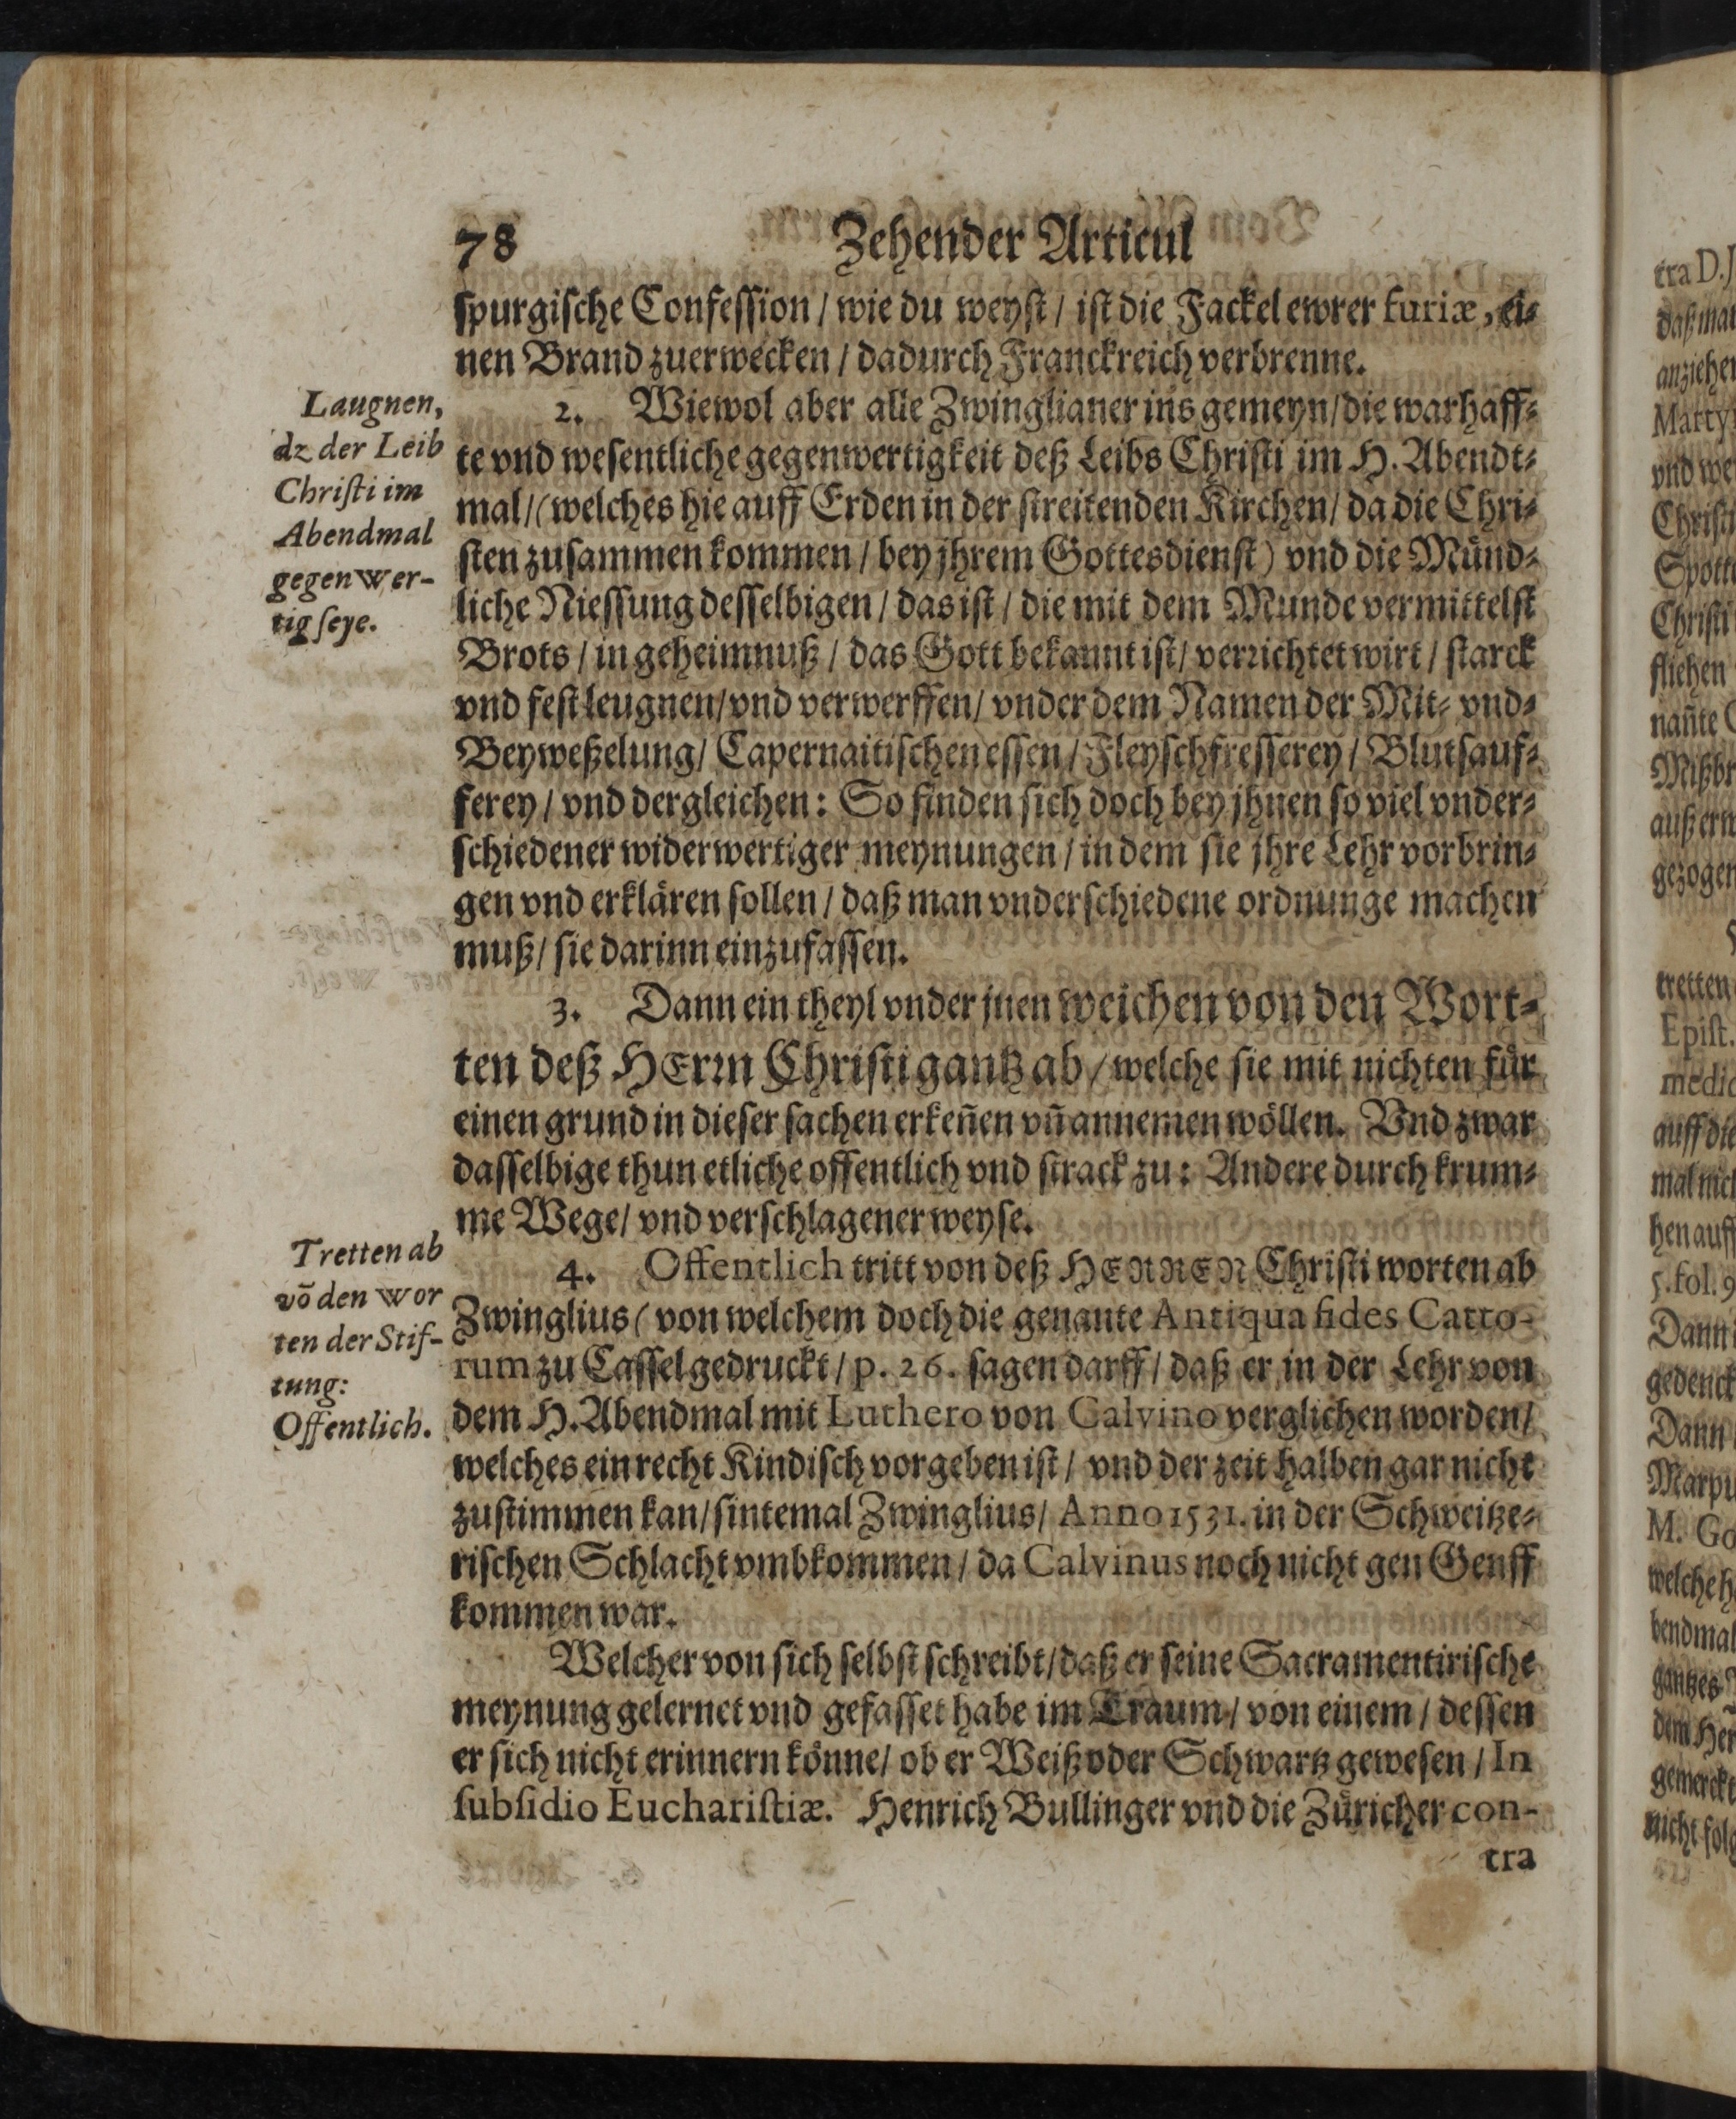 78 Zehender Articul
spurgische Confession / wie du weyst / ist die Fackel ewrer furiæ, ei-
nen Brand zuerwecken / dadurch Franckreich verbrenne.
Laugnen,
dz der Leib
Christi im
Abendmal
gegenwer-
tig seye.
2. Wiewol aber alle Zwinglianer ins gemeyn / die warhaff-
te vnd wesentliche gegenwertigkeit deß Leibs Christi im H. Abendt-
mal / (welches hie auff Erden in der streitenden Kirchen / da die Chri-
sten zusammen kommen / bey jhrem Gottesdienst) vnd die Münd-
liche Niessung desselbigen / das ist / die mit dem Munde vermittelst
Brots / in geheimnuß / das Gott bekannt ist / verrichtet wirt / starck
vnd fest leugnen / vnd verwerffen / vnder dem Namen der Mit- vnd-
Beyweßelung / Capernaitischen essen / Fleyschfresserey / Blutsauf-
ferey / vnd dergleichen: So finden sich doch bey jhnen so viel vnder-
schiedener widerwertiger meynungen / in dem sie jhre Lehr vorbrin-
gen vnd erklären sollen / daß man vnderschiedene ordnunge machen
muß / sie darinn einzufassen.
3. Dann ein theyl vnder jnen weichen von den Wort-
ten deß HErrn Christi gantz ab / welche sie mit nichten für
einen grund in dieser sachen erkeñen vñ annemen wöllen. Vnd zwar
dasselbige thun etliche offentlich vnd strack zu: Andere durch krum-
me Wege / vnd verschlagener weyse.
Tretten ab
võ den wor
ten der Stif-
tung:
Offentlich.
4. Offentlich tritt von deß HERREN Christi worten ab
Zwinglius (von welchem doch die genante Antiqua fides Catto-
rum zu Cassel gedruckt / p. 26. sagen darff / daß er in der Lehr von
dem H. Abendmal mit Luthero von Calvino verglichen worden /
welches ein recht Kindisch vorgeben ist / vnd der zeit halben gar nicht
zustimmen kan / sintemal Zwinglius / Anno 1531. in der Schweitze-
rischen Schlacht vmbkommen / da Calvinus noch nicht gen Genff
kommen war.
Welcher von sich selbst schreibt / daß er seine Sacramentirische
meynung gelernet vnd gefasset habe im Traum / von einem / dessen
er sich nicht erinnern könne / ob er Weiß oder Schwartz gewesen / In
subsidio Eucharistiæ. Henrich Bullinger vnd die Züricher con-
tra